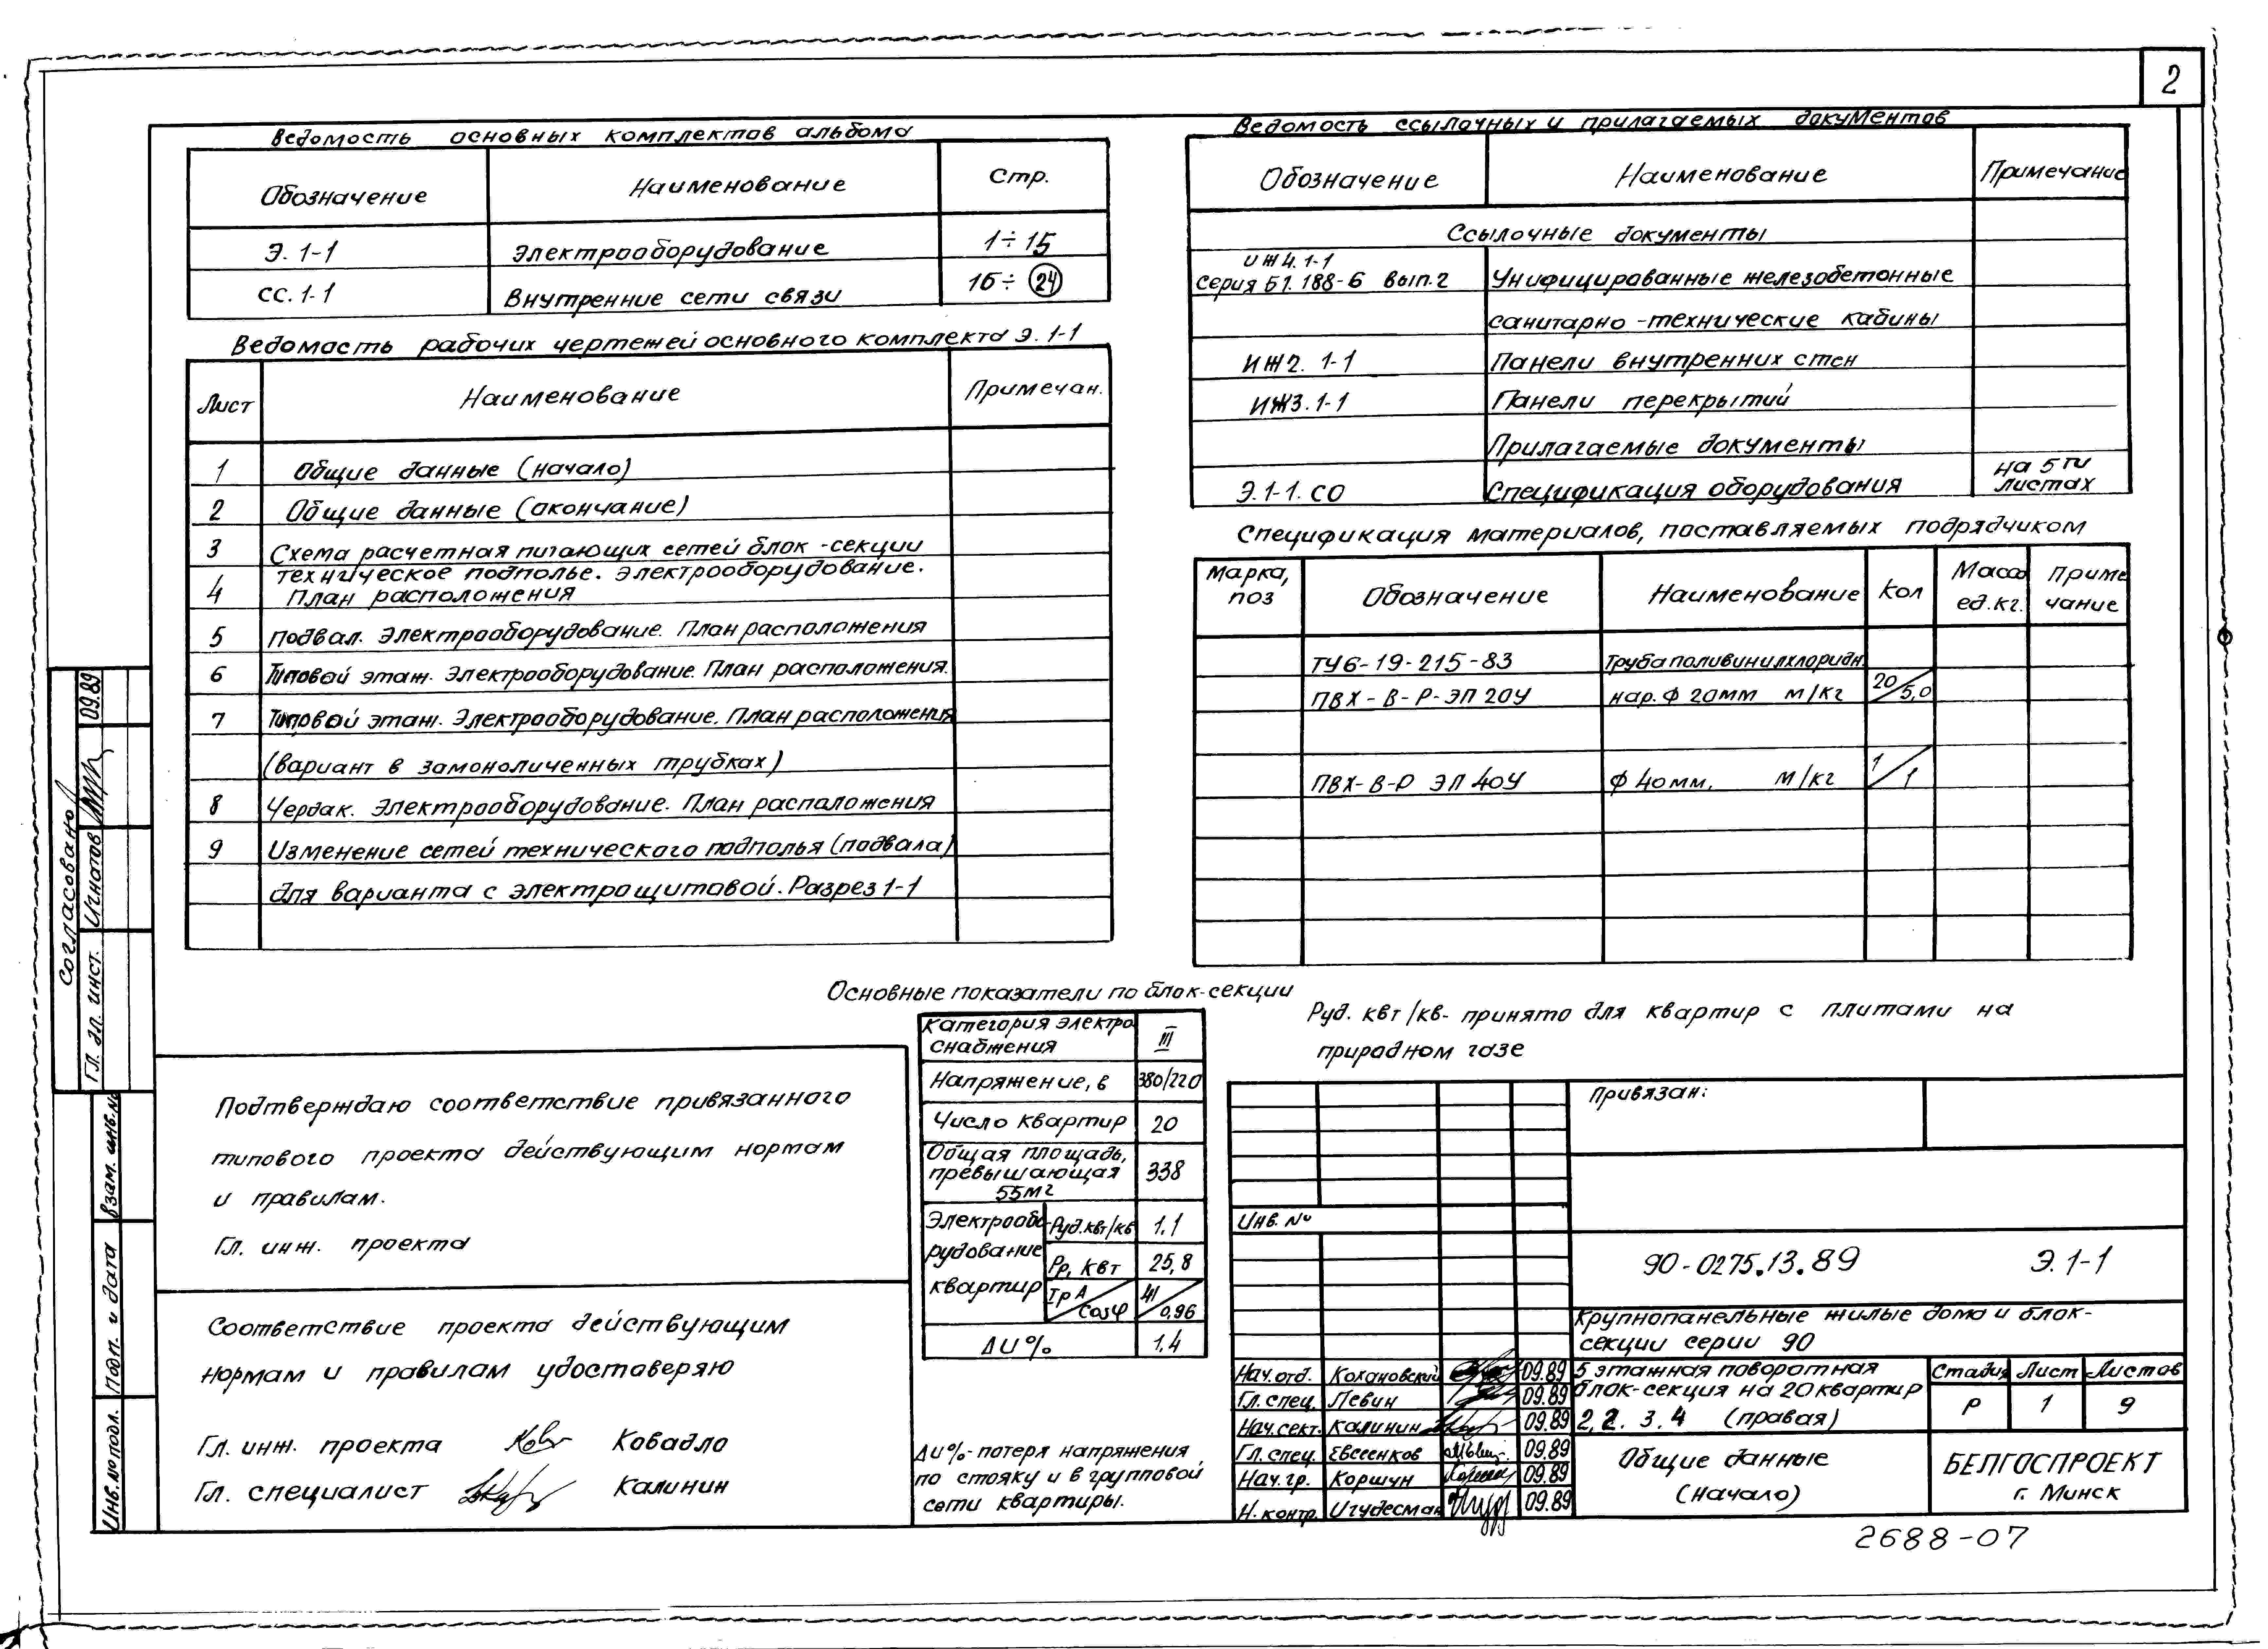 2
Ведомость основных комплектов альбома
Обозначение Наименование Стр.
Э. 1-1 Электрооборудование 1÷15
СС. 1-1 Внутренние сети связи 16÷24
Ведомость рабочих чертежей основного комплекта Э. 1-1
Лист Наименование Примечан.
1 Общие данные (начало)
2 Общие данные (окончание)
3 Схема расчетная питающих сетей блок-секции
4 Техническое подполье. Электрооборудование.
План расположения
5 Подвал. Электрооборудование. План расположения
6 Типовой этаж. Электрооборудование. План расположения.
7 Типовой этаж. Электрооборудование. План расположения
(вариант в замоноличенных трубках)
8 Чердак. Электрооборудование. План расположения
9 Изменение сетей технического подполья (подвала)
для варианта с электрощитовой. Разрез 1-1
Ведомость ссылочных и прилагаемых документов
Обозначение Наименование Примечание
Ссылочные документы
ИЖ4. 1-1
серия Б1. 188-6 вып. 2 Унифицированные железобетонные
санитарно-технические кабины
ИЖ2. 1-1 Панели внутренних стен
ИЖ3. 1-1 Панели перекрытий
Прилагаемые документы
Э. 1-1. СО Спецификация оборудования на 5ти листах
Спецификация материалов, поставляемых подрядчиком
Марка, поз Обозначение Наименование Кол Масса ед. кг. Примечание
ТУ6-19-215-83 Труба поливинилхлоридн.
ПВХ-В-Р-ЭП 20У нар. Ф 20мм м/кг 20/5,0
ПВХ-В-Р ЭП 40У Ф 40мм. м/кг 1/1
Основные показатели по блок-секции
Категория электроснабжения III
Напряжение, в 380/220
Число квартир 20
Общая площадь, превышающая 55м2 338
Электрооборудование квартир Руд. квт/кв 1,1
Рр, квт 25,8
Iр А/cosφ 41/0,96
ΔU% 1,4
Руд. квт/кв- принято для квартир с плитами на
природном газе
ΔU%- потеря напряжения
по стояку и в групповой
сети квартиры.
Подтверждаю соответствие привязанного
типового проекта действующим нормам
и правилам.
Гл. инж. проекта
Соответствие проекта действующим
нормам и правилам удостоверяю
Гл. инж. проекта Ковадло
Гл. специалист Калинин
Согласовано
Гл. эл. инст. Игнатов 09.89
Взам. инв. №
Подп. и дата
Инв. № подл.
Привязан:
Инв. №
90-0275.13.89 Э. 1-1
Крупнопанельные жилые дома и блок-
секции серии 90
Нач. отд. Кохановский 09.89
Гл. спец. Левин 09.89
Нач. сект. Калинин 09.89
Гл. спец. Евсеенков 09.89
Нач. гр. Коршун 09.89
Н. контр. Игудесман 09.89
5 этажная поворотная
блок-секция на 20 квартир
2.2. 3. 4 (правая)
Стадия Лист Листов
Р 1 9
Общие данные
(начало)
БЕЛГОСПРОЕКТ
г. Минск
2688-07